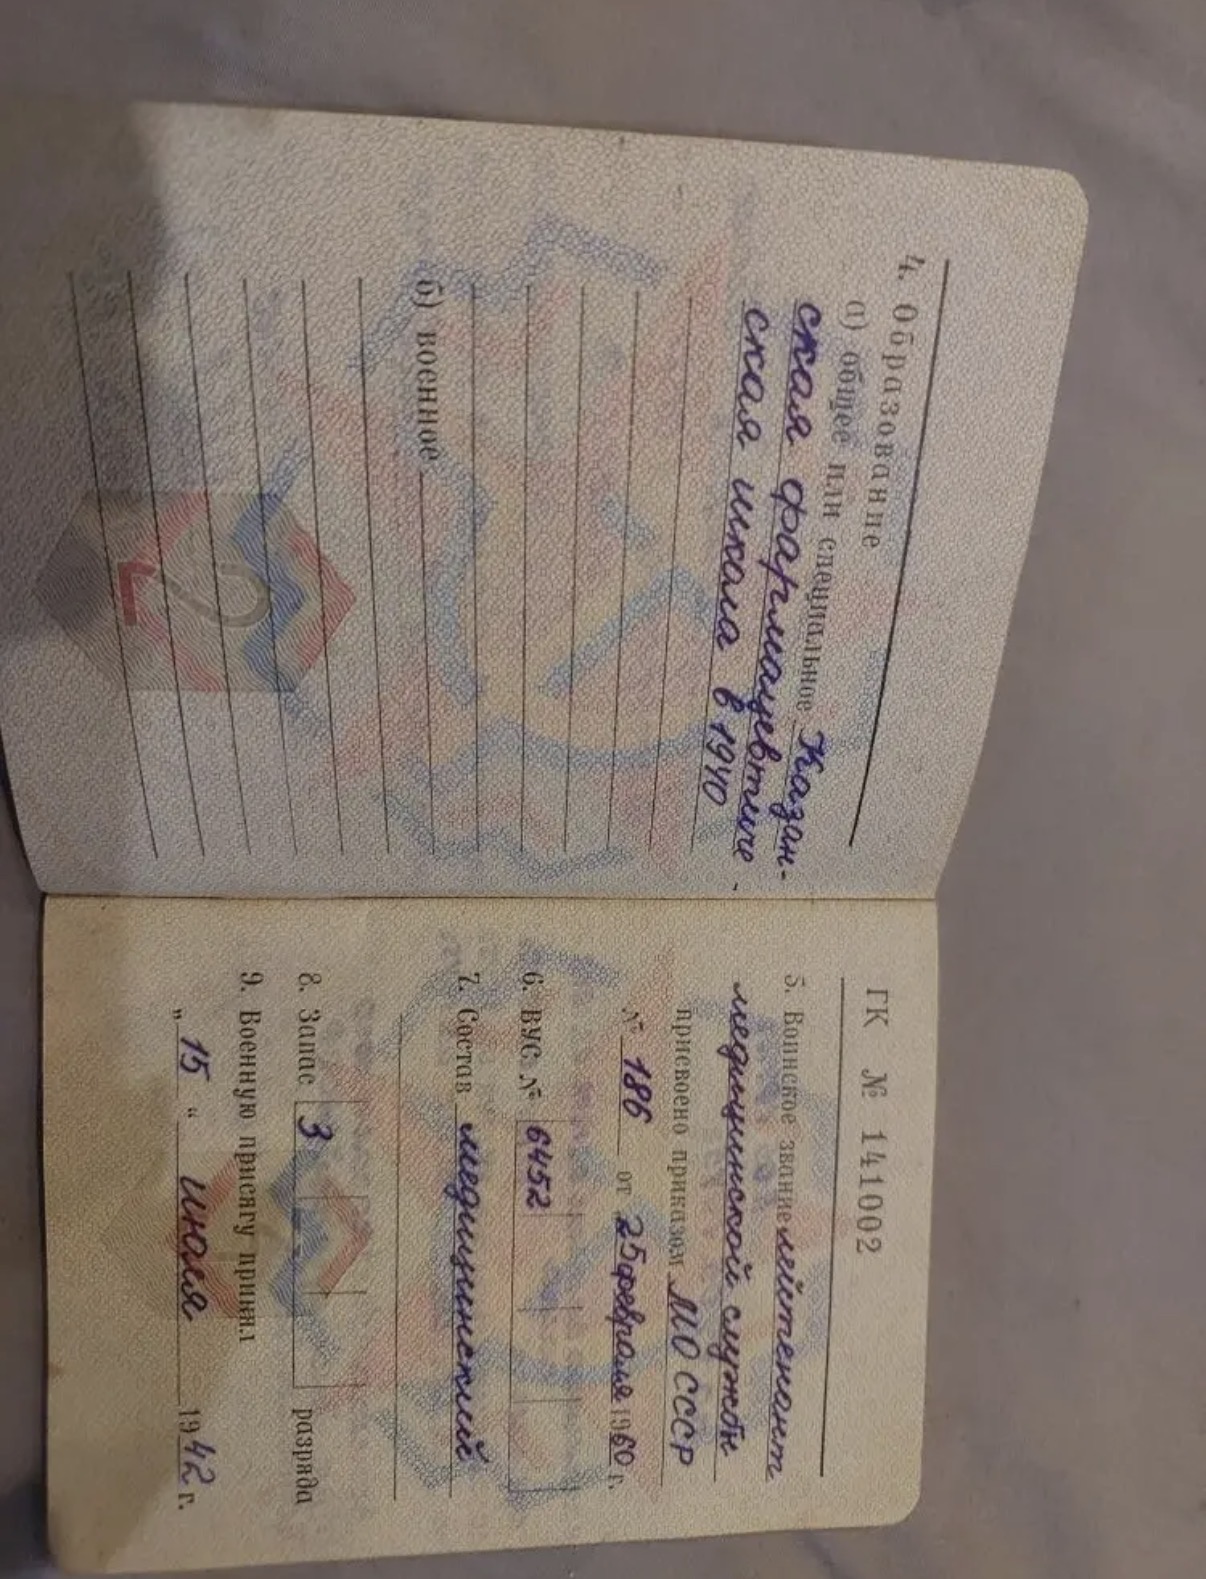 4. Образование
а) общее или специальное Казан-
ская фармацевтиче-
ская школа в 1940
б) военное
ГК № 141002
5. Воинское звание лейтенант
медицинской службы
присвоено приказом МО СССР
№ 186 от 25 февраля 1960 г.
6. ВУС № 6452
7. Состав медицинский
8. Запас 3 разряда
9. Военную присягу принял
„ 15 “ июля 1942 г.